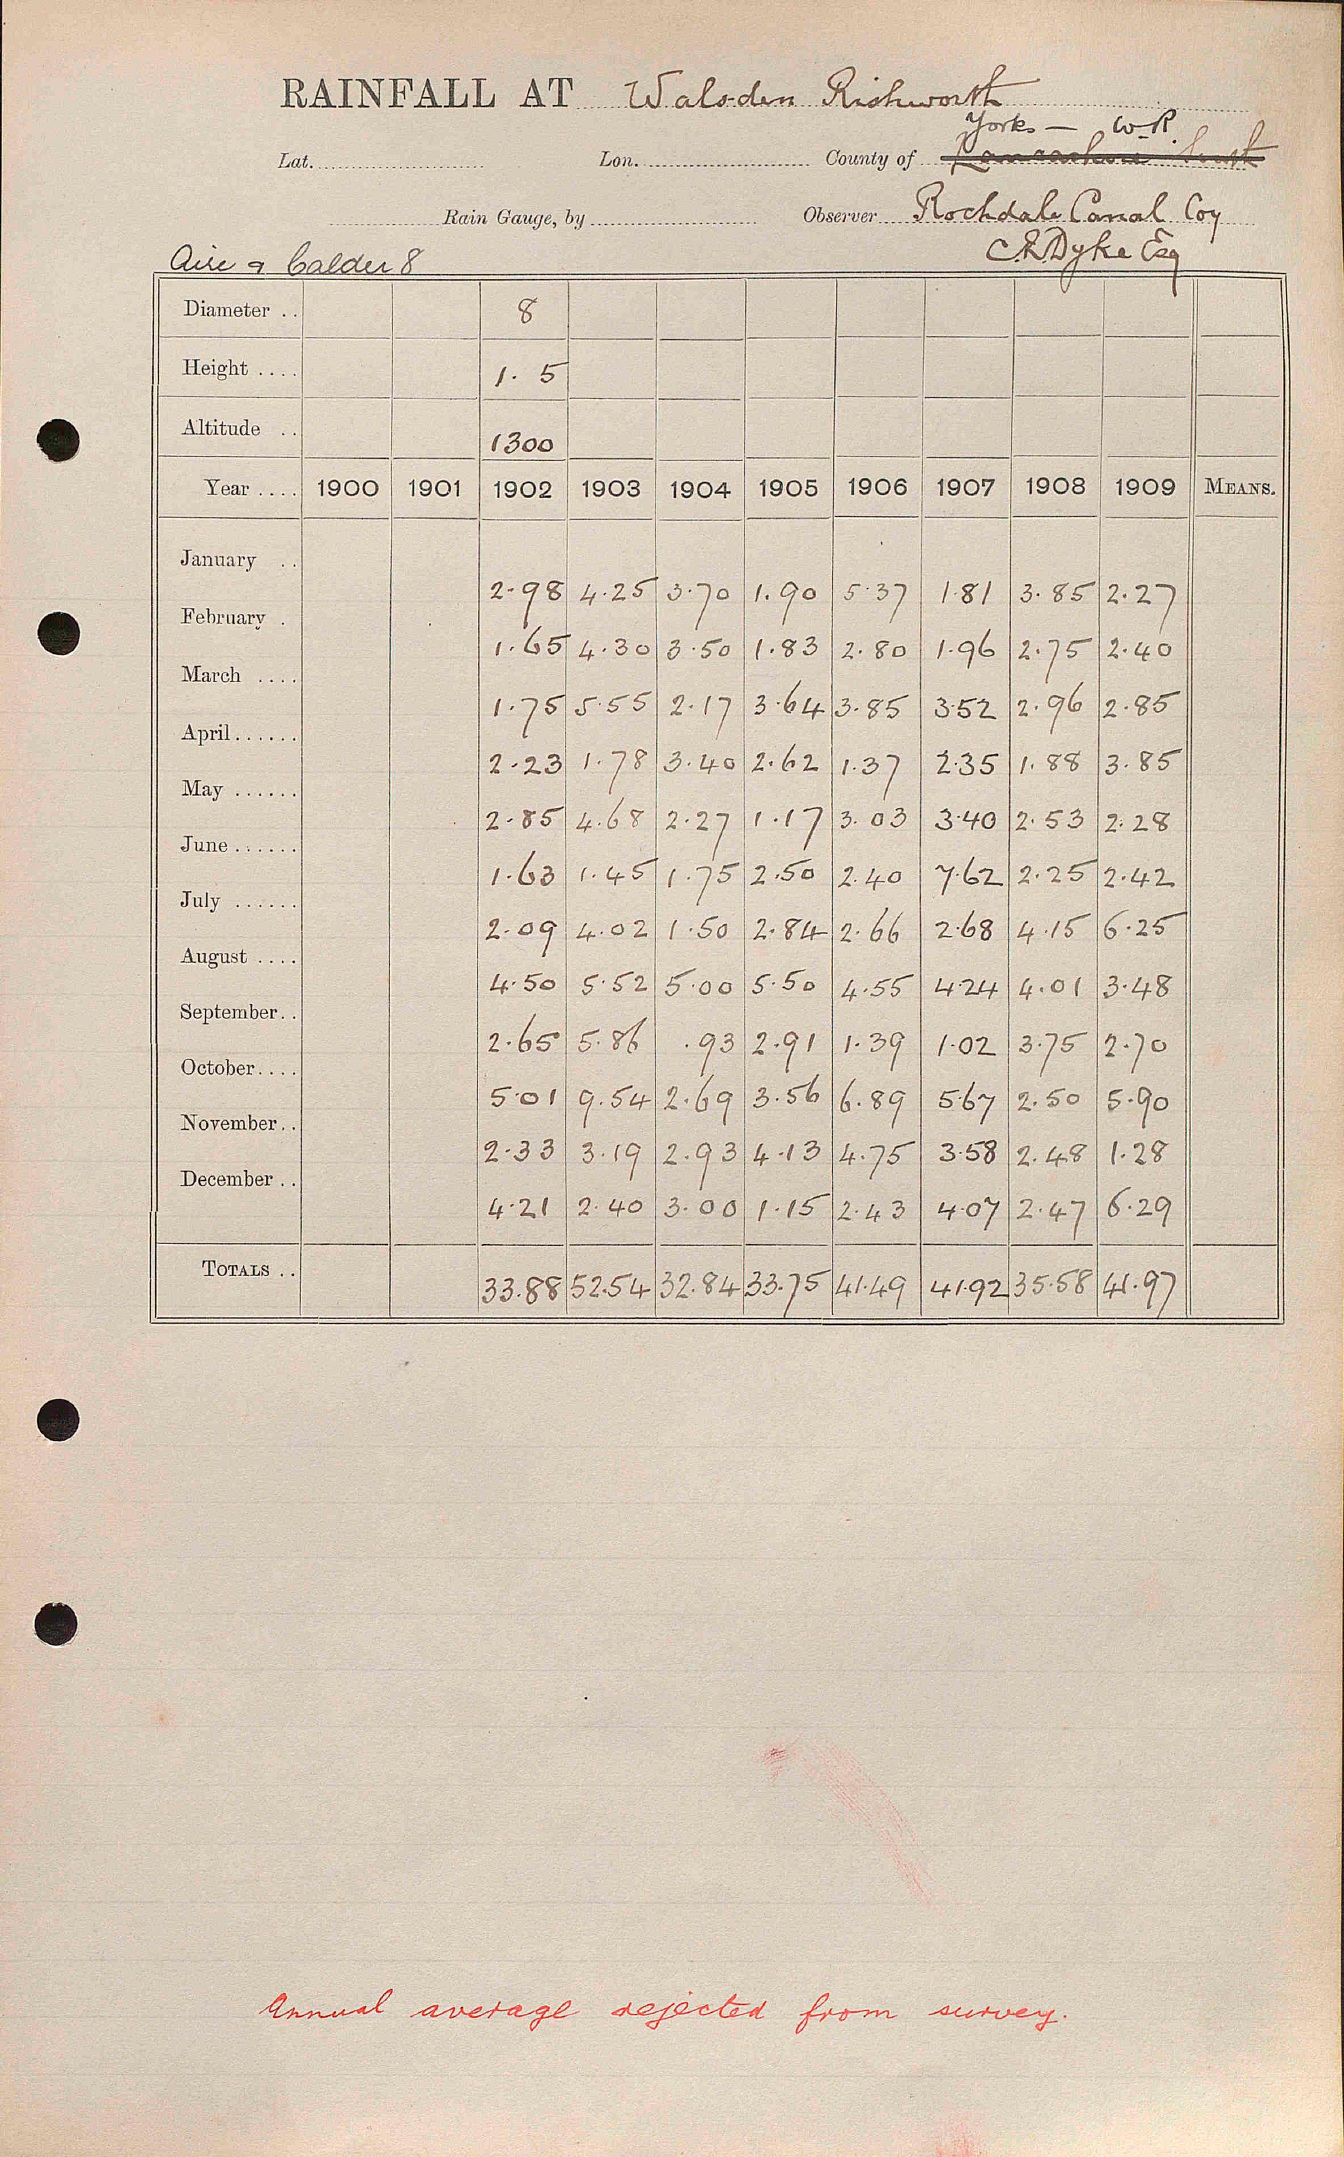 RAINFALL AT Walsden Rishworth
Yorks — W.R.
Lat. Lon. County of Lancashire South
Rain Gauge, by Observer Rochdale Canal Coy
C.R. Dyke Esq
Aire & Calder 8
Diameter .. 8
Height .... 1. 5
Altitude .. 1300
Year .... 1900 1901 1902 1903 1904 1905 1906 1907 1908 1909 MEANS.
January .. 2.98 4.25 3.70 1.90 5.37 1.81 3.85 2.27
February . 1.65 4.30 3.50 1.83 2.80 1.96 2.75 2.40
March .... 1.75 5.55 2.17 3.64 3.85 3.52 2.96 2.85
April ...... 2.23 1.78 3.40 2.62 1.37 2.35 1.88 3.85
May ...... 2.85 4.68 2.27 1.17 3.03 3.40 2.53 2.28
June ...... 1.63 1.45 1.75 2.50 2.40 7.62 2.25 2.42
July ...... 2.09 4.02 1.50 2.84 2.66 2.68 4.15 6.25
August .... 4.50 5.52 5.00 5.50 4.55 4.24 4.01 3.48
September .. 2.65 5.86 .93 2.91 1.39 1.02 3.75 2.70
October .... 5.01 9.54 2.69 3.56 6.89 5.67 2.50 5.90
November .. 2.33 3.19 2.93 4.13 4.75 3.58 2.48 1.28
December .. 4.21 2.40 3.00 1.15 2.43 4.07 2.47 6.29
TOTALS .. 33.88 52.54 32.84 33.75 41.49 41.92 35.58 41.97
Annual average rejected from survey.